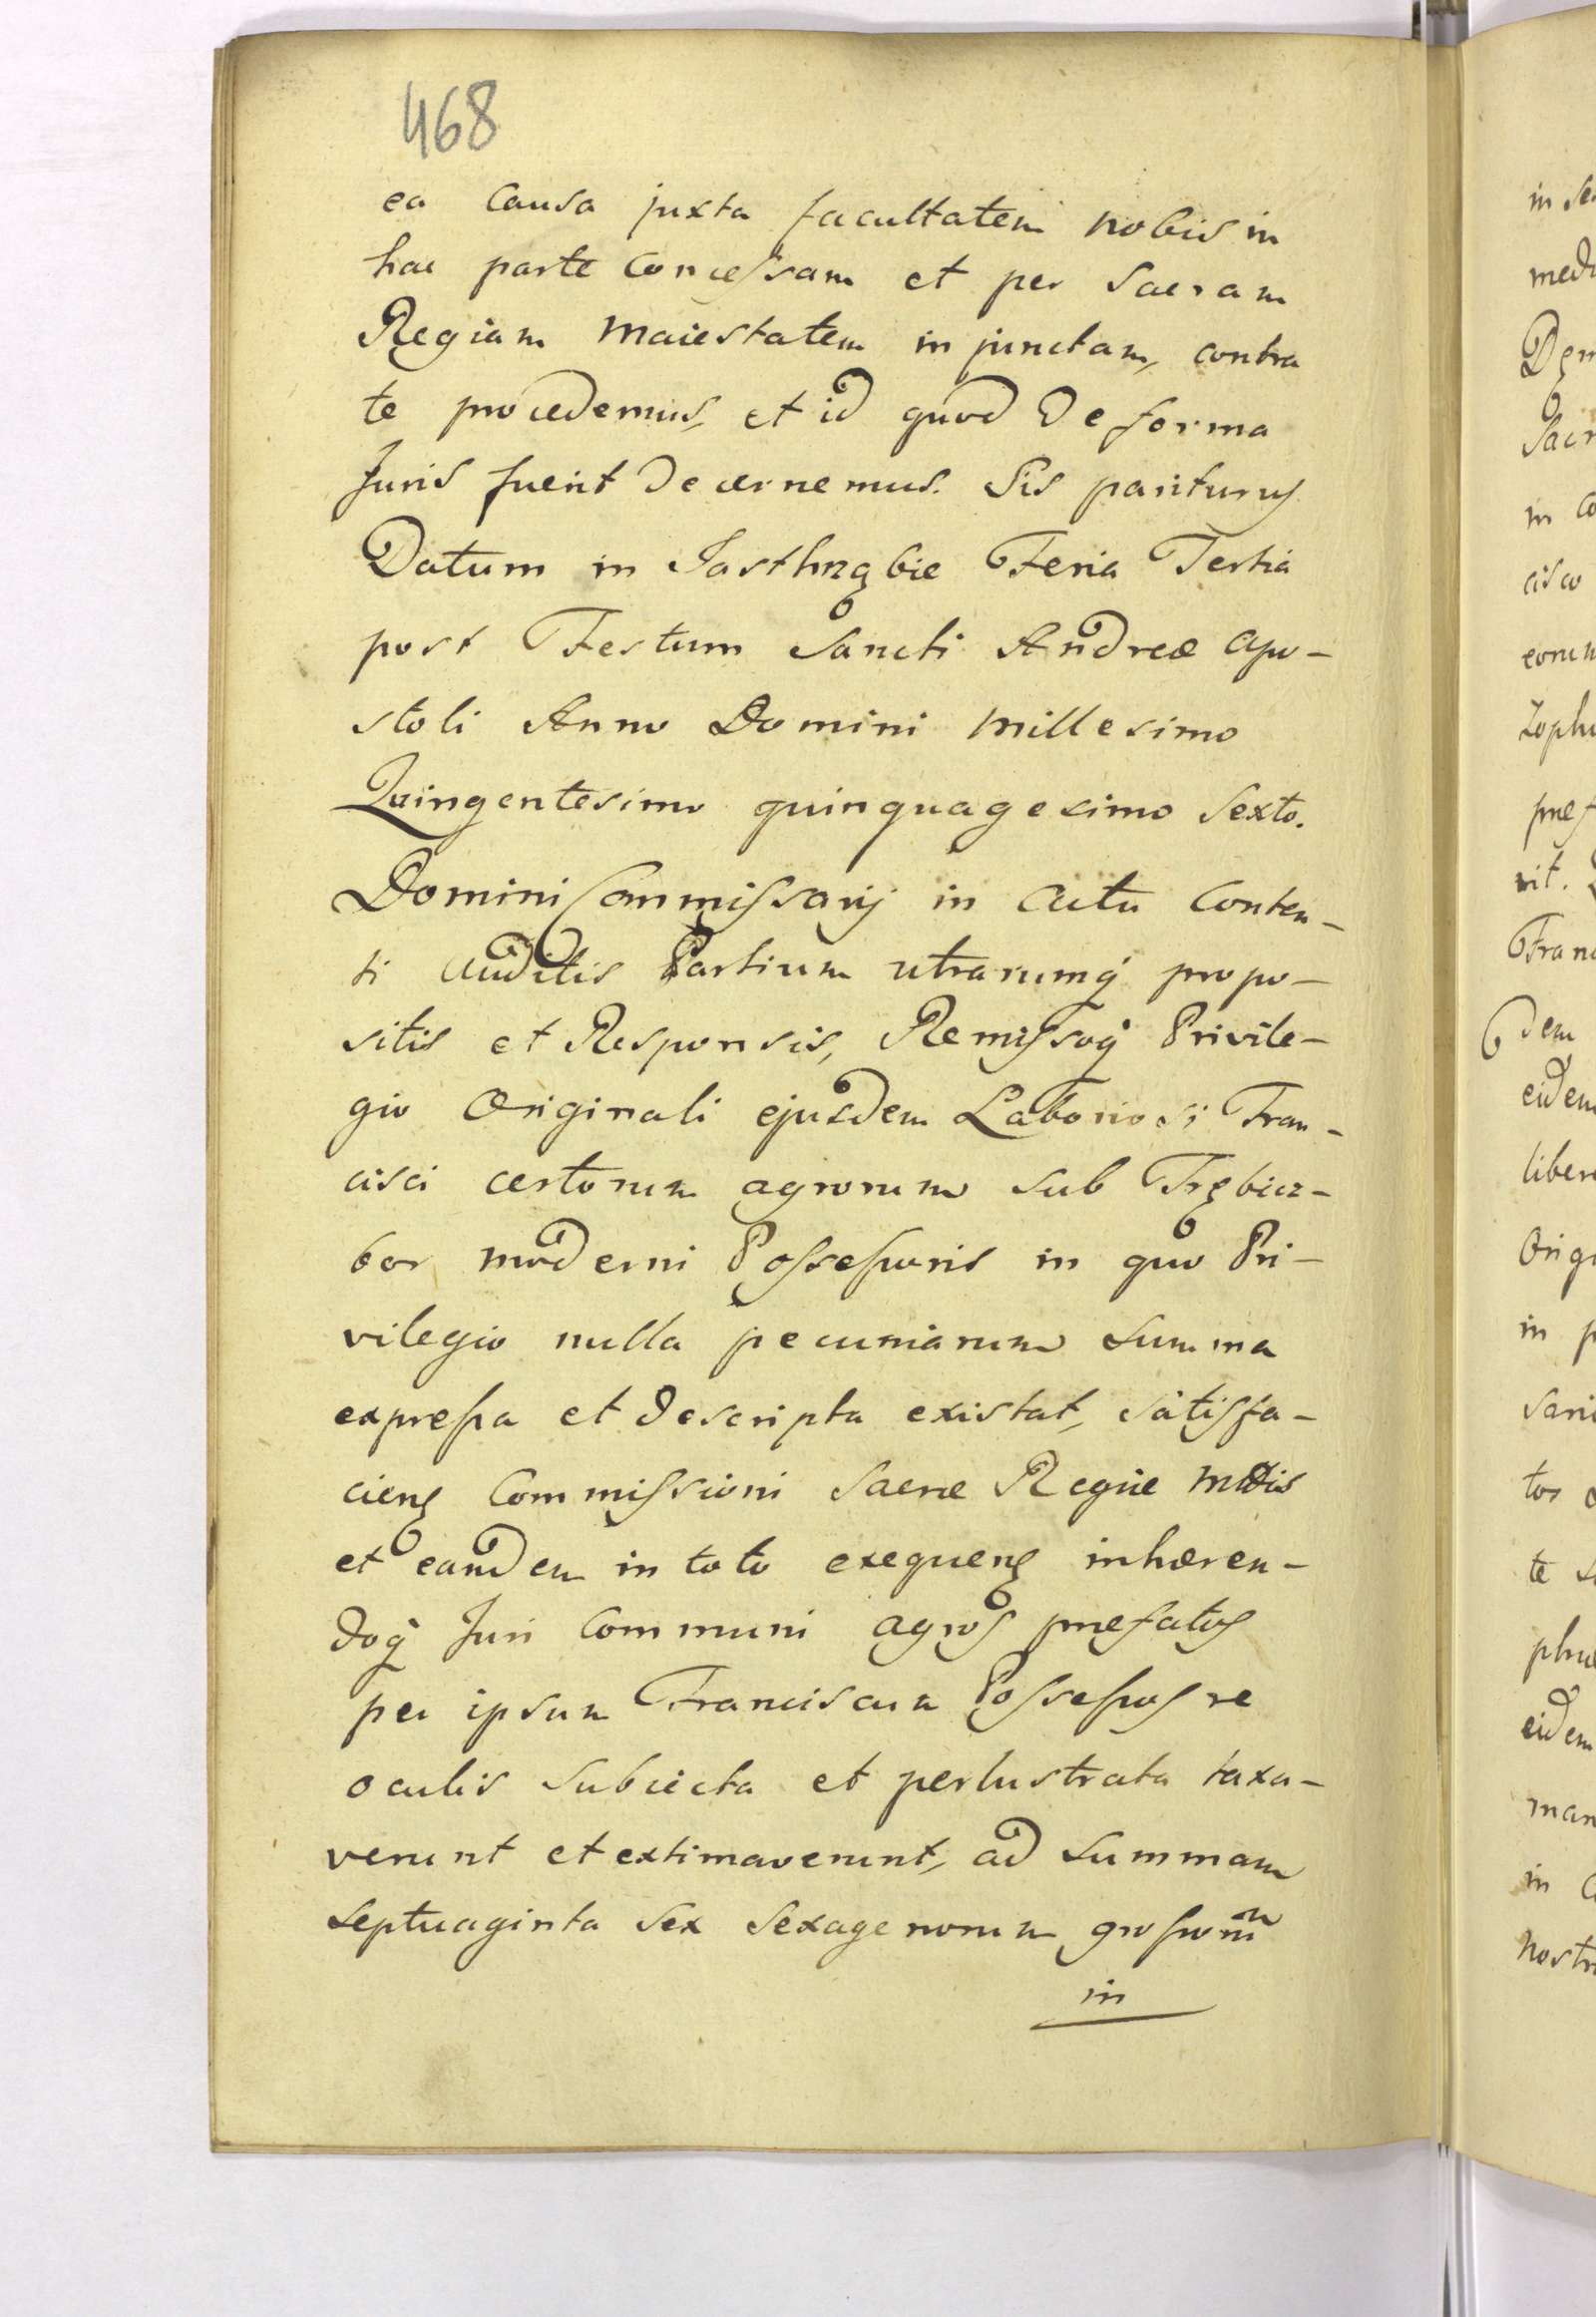 468
ea causa juxta facultatem nobis in
hac parte concessam et per Sacram
Regiam Maiestatem injunctam, contra
te procedemus, et id quod de forma
Juris fuerit decernemus. Sis pariturus
Datum in Jasthrząbie Feria Tertia
post Festum Sancti Andreæ Apo-
stoli Anno Domini Millesimo
Quingentesimo quinquagesimo Sexto.
Domini Commissarij in Actu Conten-
ti auditis Partium utrarumq́ propo-
sitis et Responsis, Remissoq́ Privile-
gio Originali ejusdem Laboriosi Fran-
cisci certorum agrorum sub
bor moderni Possessoris in quo Pri-
vilegio nulla pecuniarum summa
expressa et descripta existat, satisfa-
ciens Commissioni Sacræ Regiæ Mttis
et eandem in toto exequens inhæren-
doq́ Juri Communi agros præfatos
per ipsum Franciscum Possessos re
oculis subiecta et perlustrata taxa-
verunt et extimaverunt, ad summam
septuaginta sex sexagenorum grossorum
in
in se